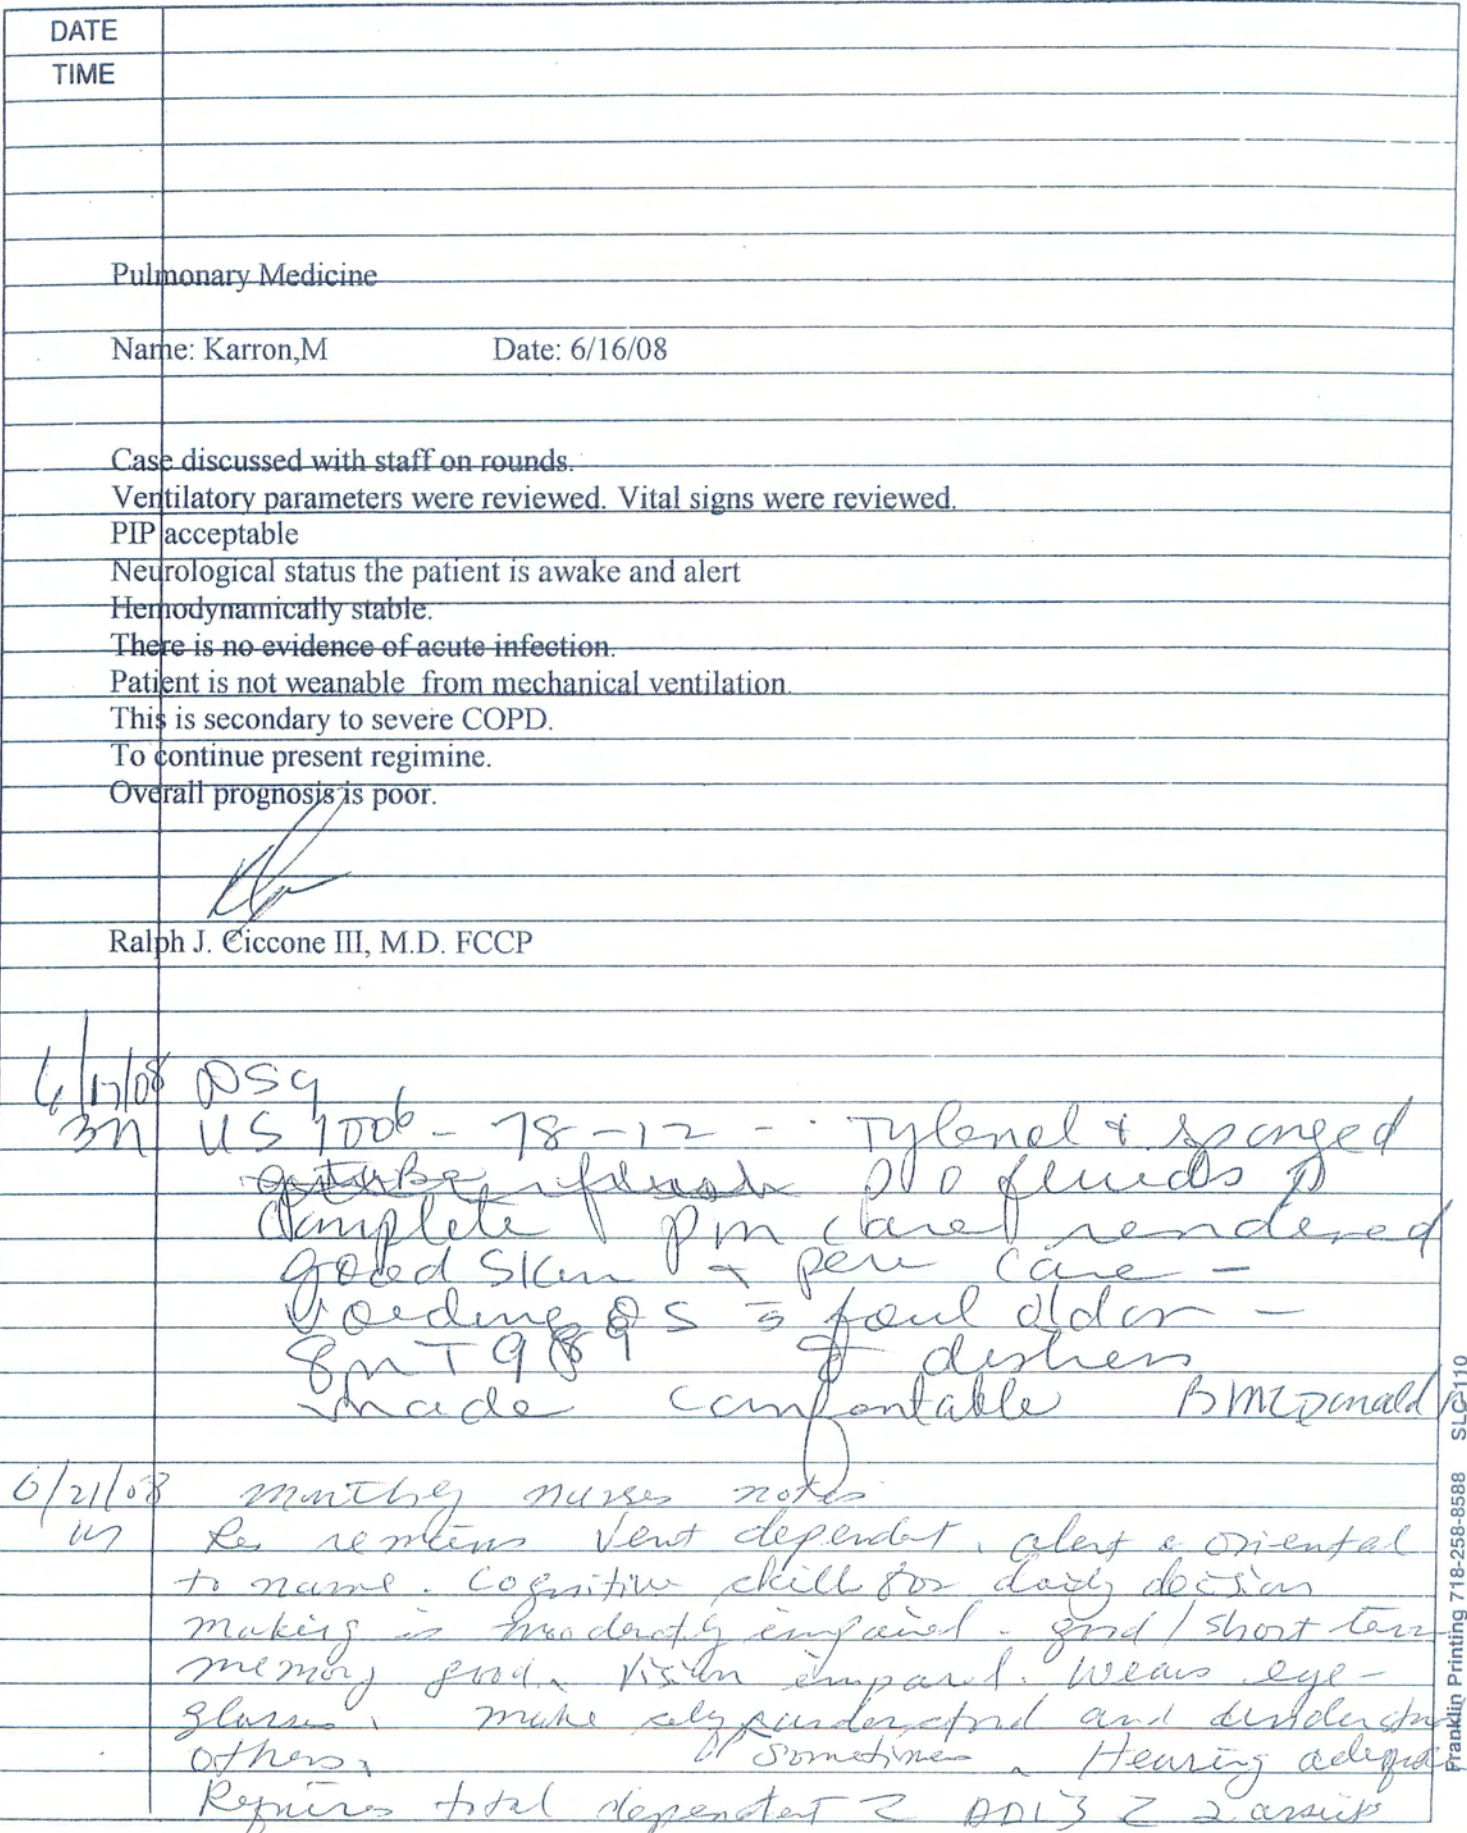 DATE
TIME
Pulmonary Medicine
Name: Karron,M Date: 6/16/08
Case discussed with staff on rounds.
Ventilatory parameters were reviewed. Vital signs were reviewed.
PIP acceptable
Neurological status the patient is awake and alert
Hemodynamically stable.
There is no evidence of acute infection.
Patient is not weanable from mechanical ventilation.
This is secondary to severe COPD.
To continue present regimine.
Overall prognosis is poor.
Ralph J. Ciccone III, M.D. FCCP
6/17/08 NSg
100⁶ - 78 - 12 - Tylenol + sponged
fluids
Complete pm care rendered
good skin + peri care -
voiding QS foul odor -
T 98⁹ distress
made comfortable B McDonald
6/21/08 monthly nurses notes
Res remains vent dependent, alert & oriental
to name. Cognitive skill for daily decision
making is moderately impaired - good / short term
memory good. Vision impared. Wears eye-
glasses. make self understood and understand
others. sometimes. Hearing adequa
Requires total dependent ADLS 2 assist
Franklin Printing 718-258-8588 SLC-110